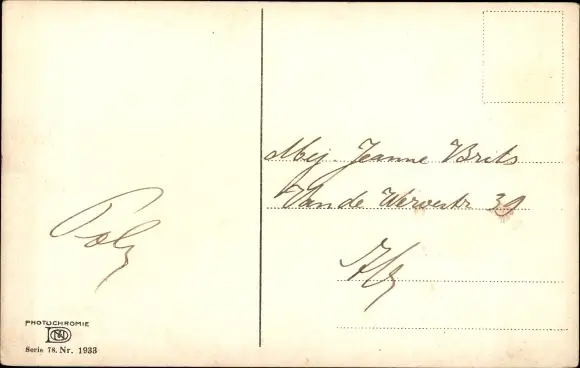 Mej. Jeanne Brets
Van de Wervestr 39
Poly
PHOTOCHROMIE
Serie 78. Nr. 1933